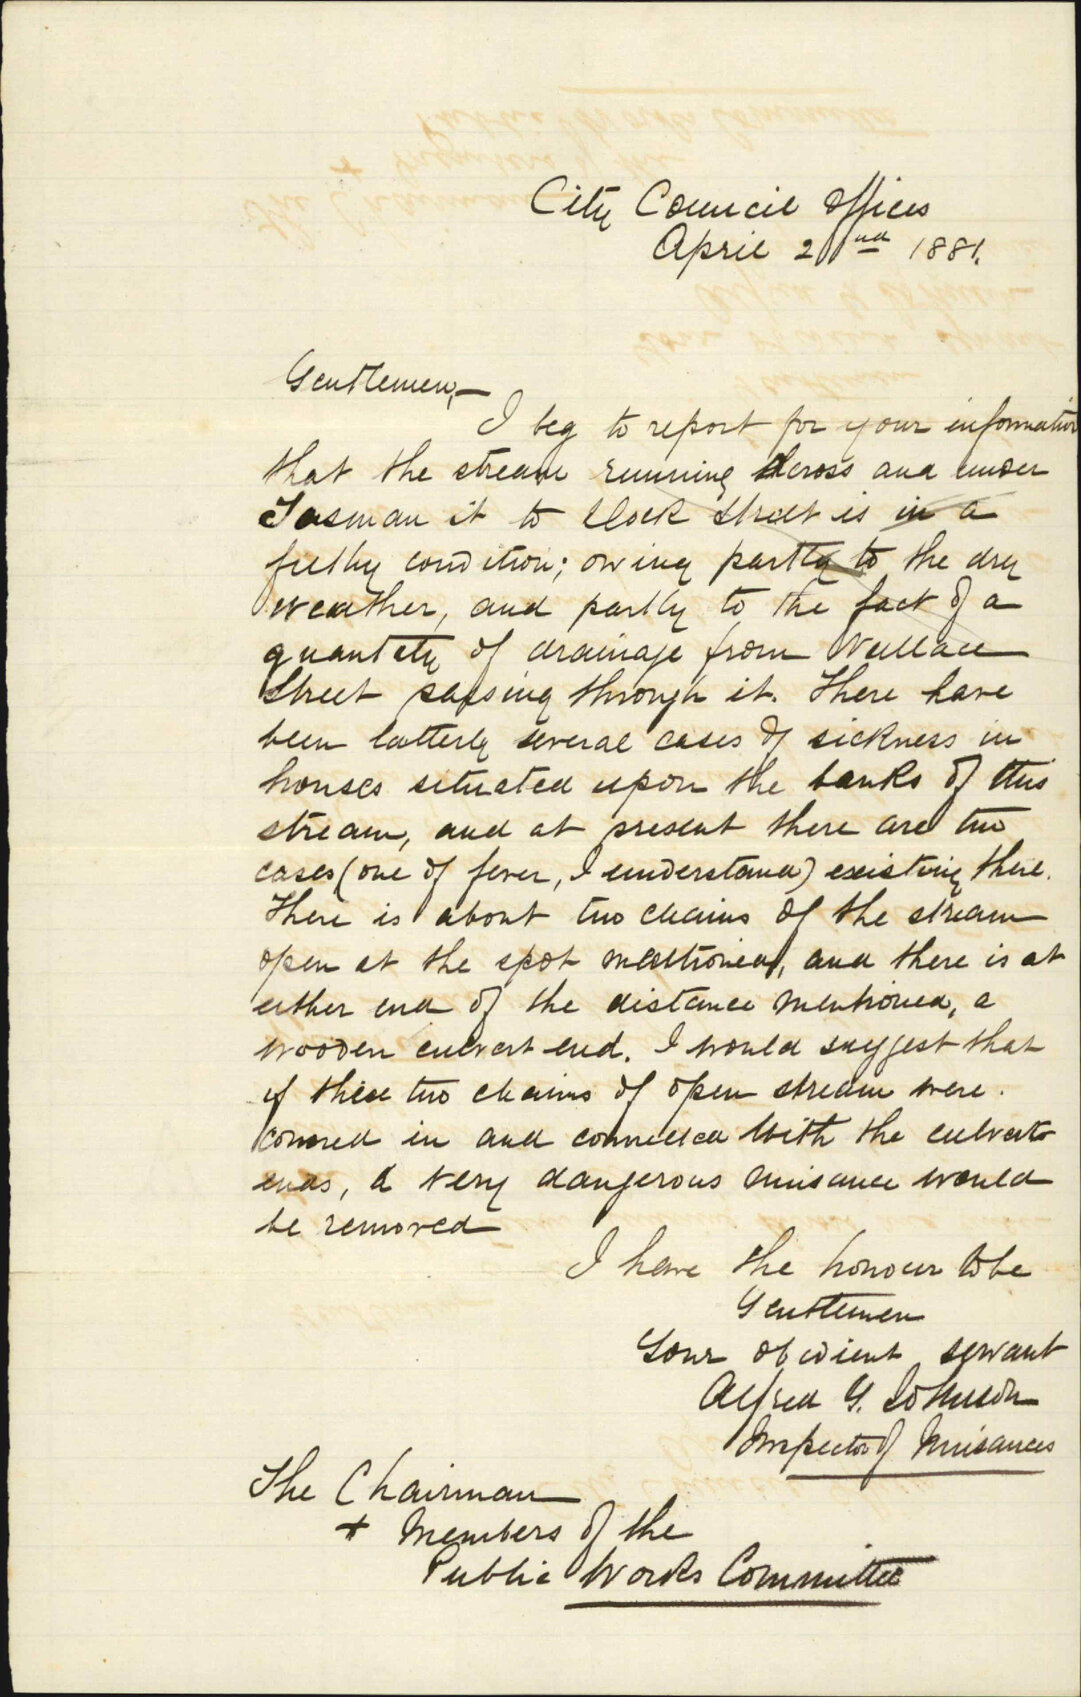 City Council Offices
April 2nd 1881.
Gentlemen,—
I beg to report for your information
that the stream running across and under
Tasman St to Rock Street is in a
filthy condition; owing partly to the dry
weather, and partly to the fact of a
quantity of drainage from Wallace
Street passing through it. There have
been latterly several cases of sickness in
houses situated upon the banks of this
stream, and at present there are two
cases (one of fever, I understand) existing there.
There is about two chains of the stream
open at the spot mentioned, and there is at
either end of the distance mentioned, a
wooden culvert end. I would suggest that
if these two chains of open stream were
covered in and connected with the culvert
ends, a very dangerous nuisance would
be removed
I have the honour to be
Gentlemen
Your obedient servant
Alfred G. Johnson
Inspector of Nuisances
The Chairman
+ Members of the
Public Works Committee